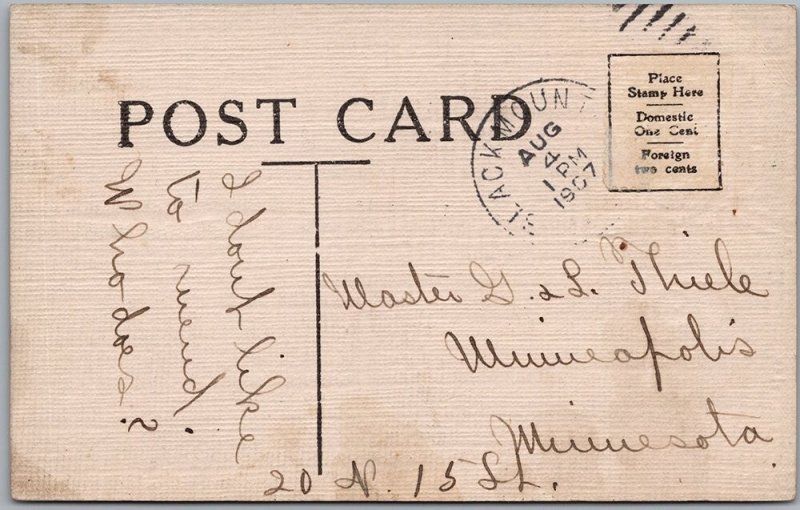 POST CARD
LACK MOUNT
AUG
4
1 PM
1907
Place
Stamp Here
Domestic
One Cent
Foreign
two cents
I dont like
to mend.
Who does?
Master G. & L. Thiele
Minneapolis
Minnesota
20 N. 15 St.